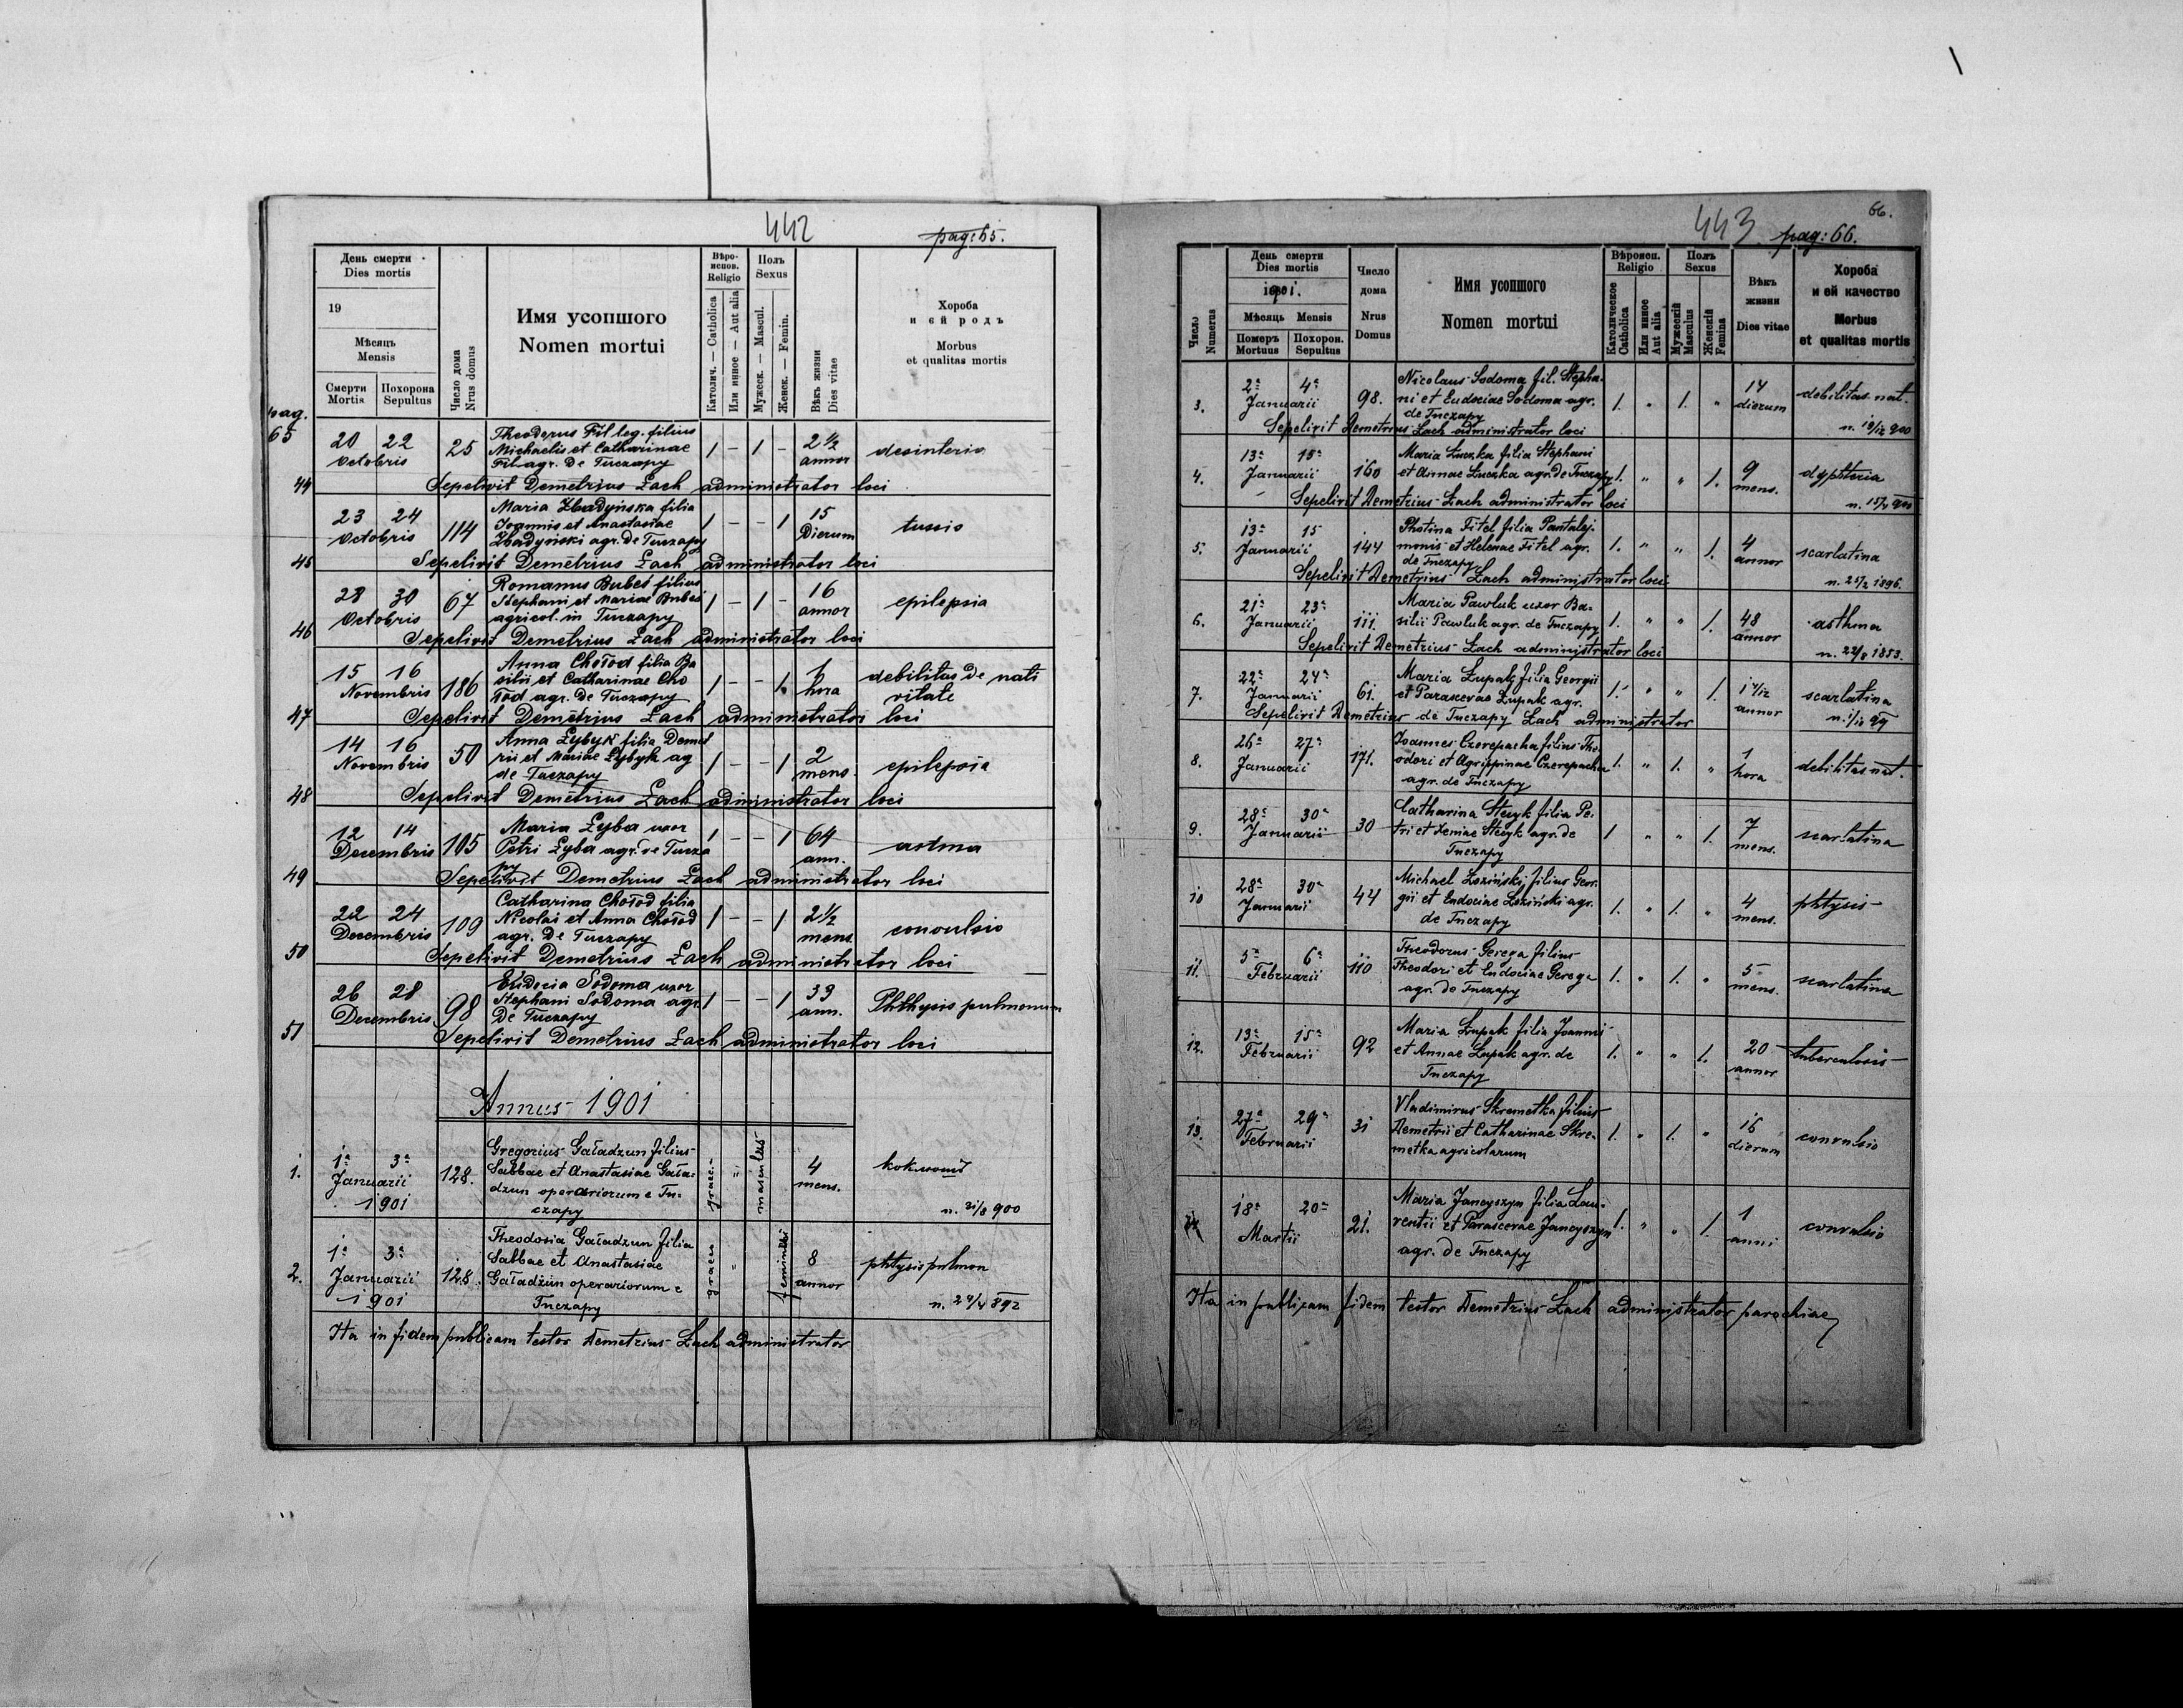 442
pag: 65.
День смерти
Dies mortis
19
Мѣсяцъ
Mensis
Смерти
Mortis
Похорона
Sepultus
Число дома
Nrus domus
Имя усопшого
Nomen mortui
Вѣро-
испов.
Religio
Католич. — Catholica
Или инное — Aut alia
Полъ
Sexus
Мужеск. — Mascul.
Женск. — Femin.
Вѣкъ жизни
Dies vitae
Хороба
и єй родъ
Morbus
et qualitas mortis
pag.
65
44
20 22
Octobris
25
Theodorus Fil leg. filius
Michaelis et Catharinae
Fil agr. de Tuczapy
1 - 1 -
2 1/2
annor
desinteria
Sepelivit Demetrius Łach administrator loci
45
23 24
Octobris
114
Maria Zbadyńska filia
Joannis et Anastasiae
Zbadyński agr. de Tuczapy
1 - - 1
15
Dierum
tussis
Sepelivit Demetrius Łach administrator loci
46
28 30
Octobris
67
Romanus Bubes filius
Stephani et Mariae Bubes
agricol. in Tuczapy
1 - 1 -
16
annor
epilepsia
Sepelivit Demetrius Łach administrator loci
47
15 16
Novembris
186
Anna Chołod filia Ba
silii et Catharinae Cho
łod agr. de Tuczapy
1 - - 1
1
hora
debilitas de nati
vitate
Sepelivit Demetrius Łach administrator loci
48
14 16
Novembris
50
Anna Łybyk filia Demet
rii et Mariae Łybyk ag
de Tuczapy
1 - - 1
2
mens.
epilepsia
Sepelivit Demetrius Łach administrator loci
49
12 14
Decembris
105
Maria Łyba uxor
Petri Łyba agr. de Tucza
py
1 - - 1
64
ann.
astma
Sepelivit Demetrius Łach administrator loci
50
22 24
Decembris
109
Catharina Chołod filia
Nicolai et Anna Chołod
agr. de Tuczapy
1 - - 1
2 1/2
mens.
convulsio
Sepelivit Demetrius Łach administrator loci
51
26 28
Decembris
98
Eudocia Sodoma uxor
Stephani Sodoma agr.
de Tuczapy
1 - - 1
39
ann.
Phthysis pulmonum
Sepelivit Demetrius Łach administrator loci
Annus 1901
1.
1a 3a
Januarii
1901
128.
Gregorius Gaładzun filius
Sabbae et Anastasiae Gała-
dzun operariorum e Tu-
czapy
graec.
"
masculus
4
mens.
n. 31/8 900
2.
1a 3a
Januarii
1901
128.
Theodosia Gaładzun filia
Sabbae et Anastasiae
Gaładzun operariorum e
Tuczapy
graeca
"
8
annor
phtysis pulmon
Ita in fidem publicam testor Demetrius Łach administrator
443
66.
pag: 66.
Число
Numerus
День смерти
Dies mortis
1901.
Мѣсяць Mensis
Померъ
Mortuus
Похорон.
Sepultus
Число
дома
Nrus
Domus
Имя усопшого
Nomen mortui
Вѣроисп.
Religio
Католическое
Catholica
Или инное
Aut alia
Полъ
Sexus
Мужескій
Masculus
Женскій
Femina
Вѣкъ
жизни
Dies vitae
Хороба
и ей качество
Morbus
et qualitas mortis
3.
2a 4a
Januarii
98.
Nicolaus Sodoma fil. Stepha-
ni et Eudociae Sodoma agr.
de Tuczapy
1. " 1. "
14
dierum
debilitas nat.
n. 19/12 900
Sepelivit Demetrius Łach administrator loci
4.
13a 15a
Januarii
160
Maria Łuczka filia Stephani
et Annae Łuczka agr. de Tuczapy
1. " " 1.
9
mens.
dyphteria
Sepelivit Demetrius Łach administrator loci
5.
13a 15
Januarii
144
Photina Fitel filia Pantalej-
monis et Helenae Fitel agr.
de Tuczapy
1. " " 1.
4
annor
scarlatina
n. 25/2 1896.
Sepelivit Demetrius Łach administrator loci
6.
21a 23a
Januarii
111.
Maria Pawluk uxor Ba-
silii Pawluk agr. de Tuczapy
1. " " 1.
48
annor
asthma
n. 22/8 1853.
Sepelivit Demetrius Łach administrator loci
7.
22a 24a
Januarii
61.
Maria Łupak filia Georgii
et Parascevae Łupak agr.
de Tuczapy
1. " " 1.
1 1/12
annor
scarlatina
n. 1/12 99
Sepelivit Demetrius Łach administrator
8.
26a 27a
Januarii
171.
Joannes Czerepacha filius Theo-
odori et Agrippinae Czerepacha
agr. de Tuczapy
1. " 1. "
1
hora
debilitas nat.
9.
28a 30a
Januarii
30
Catharina Stecyk filia Pe-
tri et Xeniae Stecyk agr. de
Tuczapy
1 " " 1.
7
mens.
scarlatina
10
28a 30a
Januarii
44
Michael Łoziński filius Geor-
gii et Eudociae Łoziński agr.
de Tuczapy
1. " 1. "
4
mens.
phtysis
11.
5a 6a
Februarii
110
Theodorus Gerega filius
Theodori et Eudociae Gerega
agr. de Tuczapy
1. " 1. "
5
mens.
scarlatina
12.
13a 15a
Februarii
92
Maria Łupak filia Joannis
et Annae Łupak agr. de
Tuczapy
1. " " 1.
20
annor
tuberculosis
13.
27a 29a
Februarii
31
Vladimirus Skremetka filius
Demetrii et Catharinae Skre-
metka agricolarum
1. " 1. "
16
dierum
convulsio
14
18a 20a
Martii
21.
Maria Jancyszyn filia Lau-
rentii et Parascevae Jancyszyn
agr. de Tuczapy
1. " " 1.
1
anni
convulsio
Ita in publicam fidem testor Demetrius Łach administrator parochiae